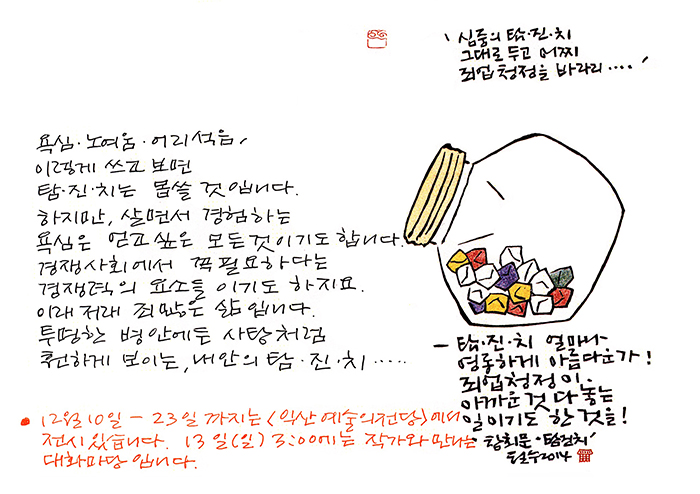 '심중의 탐·진·치
그대로 두고 어찌
죄업청정을 바라리····'
욕심·노여움·어리석음,
이렇게 쓰고 보면
탐·진·치는 몹쓸 것입니다.
하지만, 살면서 경험하는
욕심은 얻고 싶은 모든것이기도 합니다.
경쟁사회에서 꼭 필요하다는
경쟁력의 요소들 이기도 하지요.
이래저래 죄 많은 삶입니다.
투명한 병안에든 사탕처럼
훤하게 보이는, 내안의 탐·진·치·····
- 탐·진·치 얼마나
영롱하게 아름다운가!
죄업청정이,
아까운것 다 놓는
일이기도 한 것을!
참회문·탐진치
철수2014
• 12월10일 - 23일 까지는 <익산 예술의전당>에서
전시 있습니다. 13일(일) 3:00에는 작가와 만나는
대화마당 입니다.